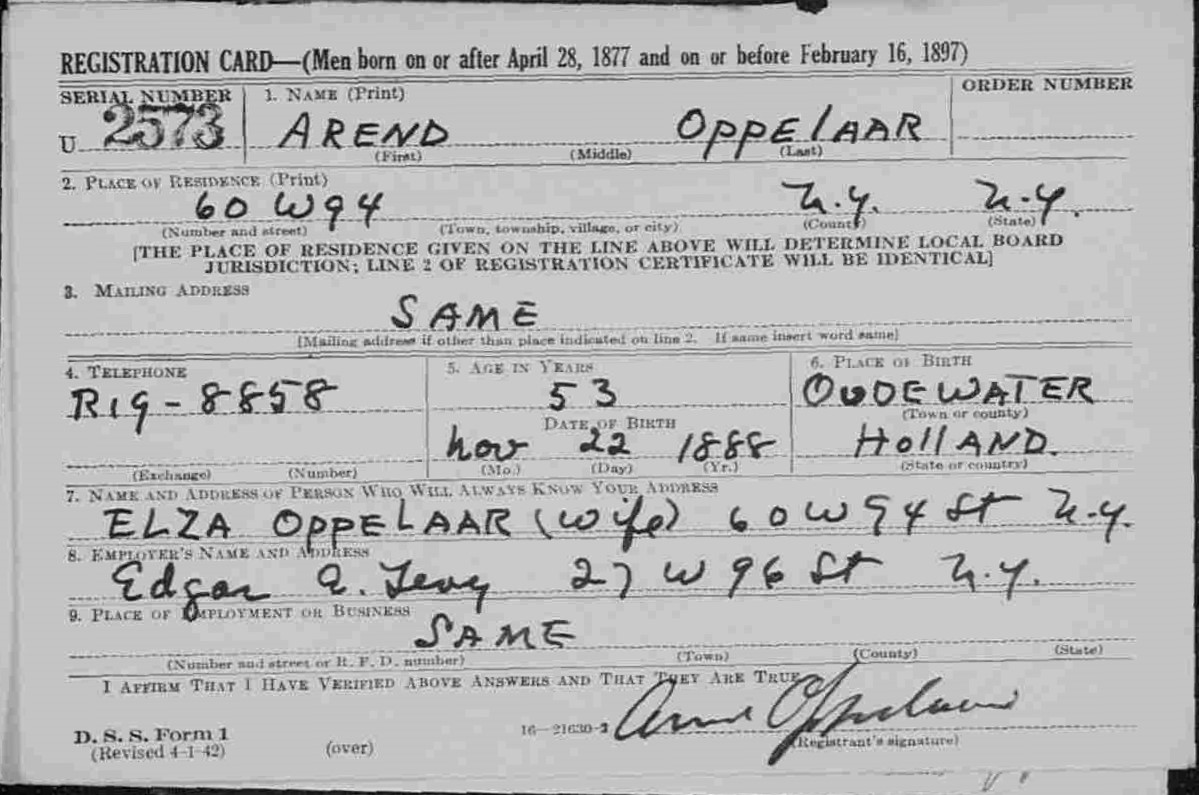 REGISTRATION CARD—(Men born on or after April 28, 1877 and on or before February 16, 1897)
SERIAL NUMBER 1. NAME (Print) ORDER NUMBER
U 2573 AREND OPPELAAR
(First) (Middle) (Last)
2. PLACE OF RESIDENCE (Print)
60 W 94 N.Y. N.Y.
(Number and street) (Town, township, village, or city) (County) (State)
[THE PLACE OF RESIDENCE GIVEN ON THE LINE ABOVE WILL DETERMINE LOCAL BOARD
JURISDICTION; LINE 2 OF REGISTRATION CERTIFICATE WILL BE IDENTICAL]
3. MAILING ADDRESS
SAME
[Mailing address if other than place indicated on line 2. If same insert word same]
4. TELEPHONE 5. AGE IN YEARS 6. PLACE OF BIRTH
RIG-8858 53 OUDEWATER
DATE OF BIRTH (Town or county)
Nov 22 1888 HOllAND.
(Exchange) (Number) (Mo.) (Day) (Yr.) (State or country)
7. NAME AND ADDRESS OF PERSON WHO WILL ALWAYS KNOW YOUR ADDRESS
ELZA OPPELAAR (wife) 60 W 94 St N.Y.
8. EMPLOYER'S NAME AND ADDRESS
Edgar A. Levy 27 W 96 St N.Y.
9. PLACE OF EMPLOYMENT OR BUSINESS
SAME
(Number and street or R. F. D. number) (Town) (County) (State)
I AFFIRM THAT I HAVE VERIFIED ABOVE ANSWERS AND THAT THEY ARE TRUE.
D. S. S. Form 1 16—21630-2 Arend Oppelaar
(Revised 4-1-42) (over) (Registrant's signature)